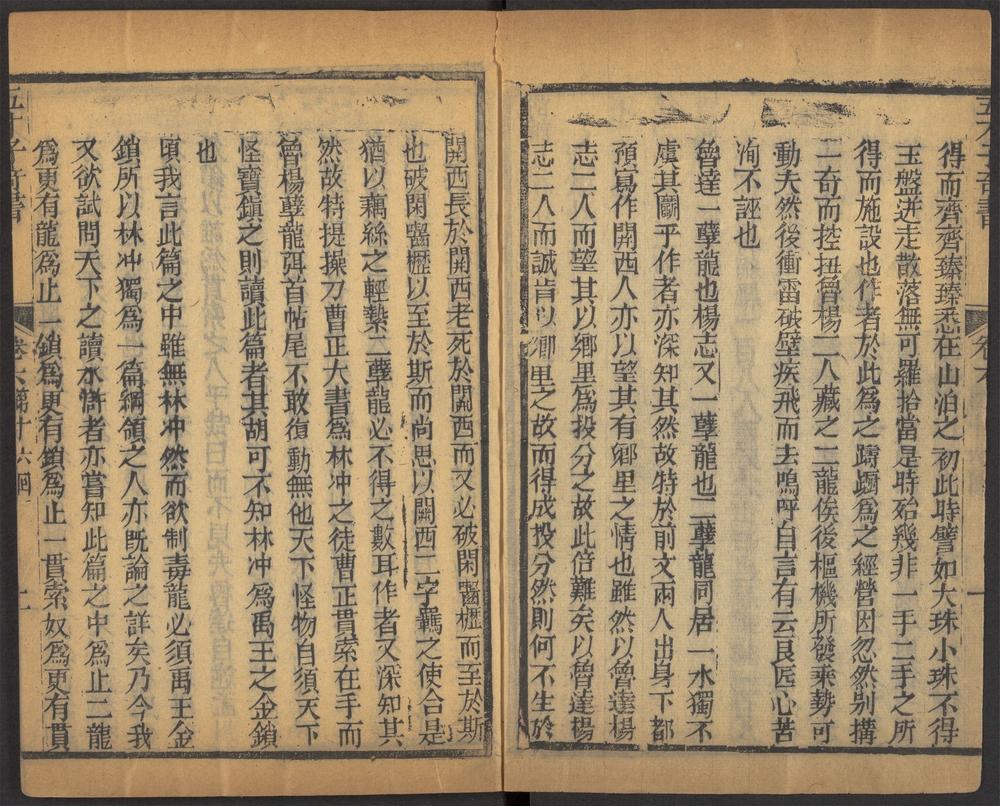 得而齊齊臻臻悉在山泊之初此時譬如大珠小珠不得
玉盤迸走散落無可羅拾當是時殆幾非一手二手之所
得而施設也作者於此為之躊躇為之經營因忽然別搆
一奇而控扭魯楊二人藏之二龍俟後樞機所發乘勢可
動夫然後衝雷破壁疾飛而去嗚呼自言有云良匠心苦
洵不誣也
魯達一孽龍也楊志又一孽龍也二孽龍同居一水獨不
虞其鬬乎作者亦深知其然故特於前文兩人出身下都
預寫作開西人亦以望其有鄉里之情也雖然以魯達楊
志二人而望其以鄉里為投分之故此倍難矣以魯達楊
志二人而誠肯以鄉里之故而得成投分然則何不生於
開西長於開西老死於開西而又必破閑嚙櫪而至於斯
也破閑嚙櫪以至於斯而尚思以關西二字羈之使合是
猶以藕絲之輕縶二孽龍必不得之數耳作者又深知其
然故特提操刀曹正大書為林冲之徒曹正貫索在手而
魯楊孽龍弭首帖尾不敢復動無他天下怪物自須天下
怪寶鎮之則讀此篇者其胡可不知林冲為禹王之金鎖
也
頃我言此篇之中雖無林冲然而欲制毒龍必須禹王金
鎖所以林冲獨為一篇綱領之人亦既論之詳矣乃今我
又欲試問天下之讀水滸者亦嘗知此篇之中為止二龍
為更有龍為止一鎖為更有鎖為止一貫索奴為更有貫
五才子奇書
卷六第十六囘
二